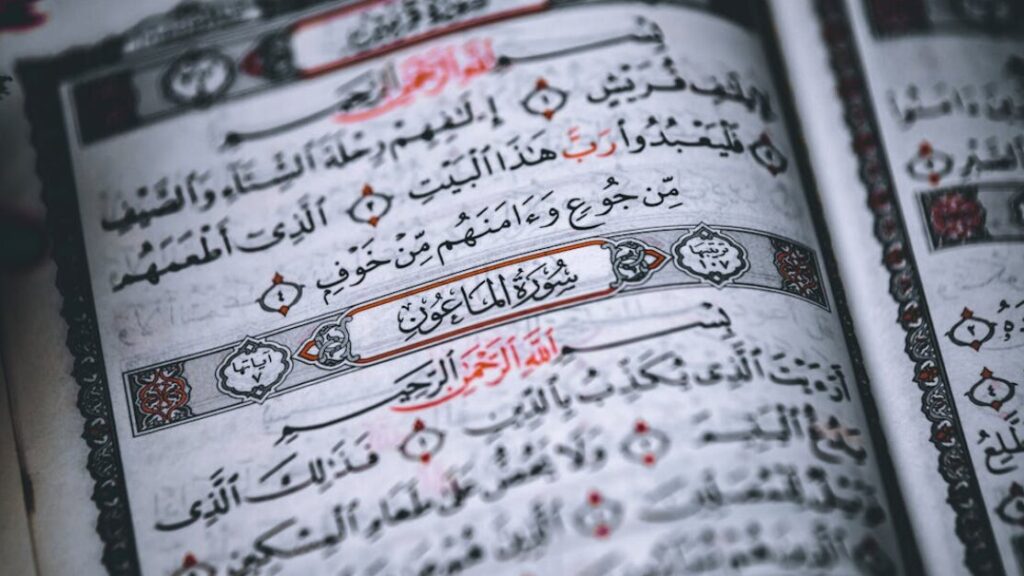 بِسْمِ ٱللَّهِ ٱلرَّحْمَٰنِ ٱلرَّحِيمِ
لِإِيلَٰفِ قُرَيْشٍ ١ إِۦلَٰفِهِمْ رِحْلَةَ ٱلشِّتَآءِ وَٱلصَّيْفِ
٢ فَلْيَعْبُدُوا۟ رَبَّ هَٰذَا ٱلْبَيْتِ ٣ ٱلَّذِىٓ أَطْعَمَهُم
مِّن جُوعٍ وَءَامَنَهُم مِّنْ خَوْفٍۭ ٤
ترتيبها ١٠٧ سُورَةُ المَاعُونِ آياتها ٧
بِسْمِ ٱللَّهِ ٱلرَّحْمَٰنِ ٱلرَّحِيمِ
أَرَءَيْتَ ٱلَّذِى يُكَذِّبُ بِٱلدِّينِ ١ فَذَٰلِكَ ٱلَّذِى
يَدُعُّ ٱلْيَتِيمَ ٢ وَلَا يَحُضُّ عَلَىٰ طَعَامِ ٱلْمِسْكِينِ
فَوَيْلٌ لِّلْمُصَلِّينَ ٱلَّذِينَ هُمْ